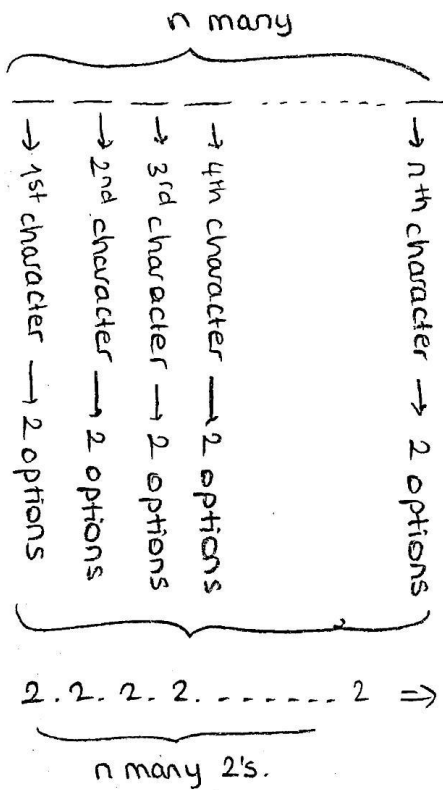 n many
→ 1st character → 2 options
→ 2nd character → 2 options
→ 3rd character → 2 options
→ 4th character → 2 options
→ nth character → 2 options
2 . 2 . 2 . 2 . - - - - - - . 2 ⇒
n many 2's.